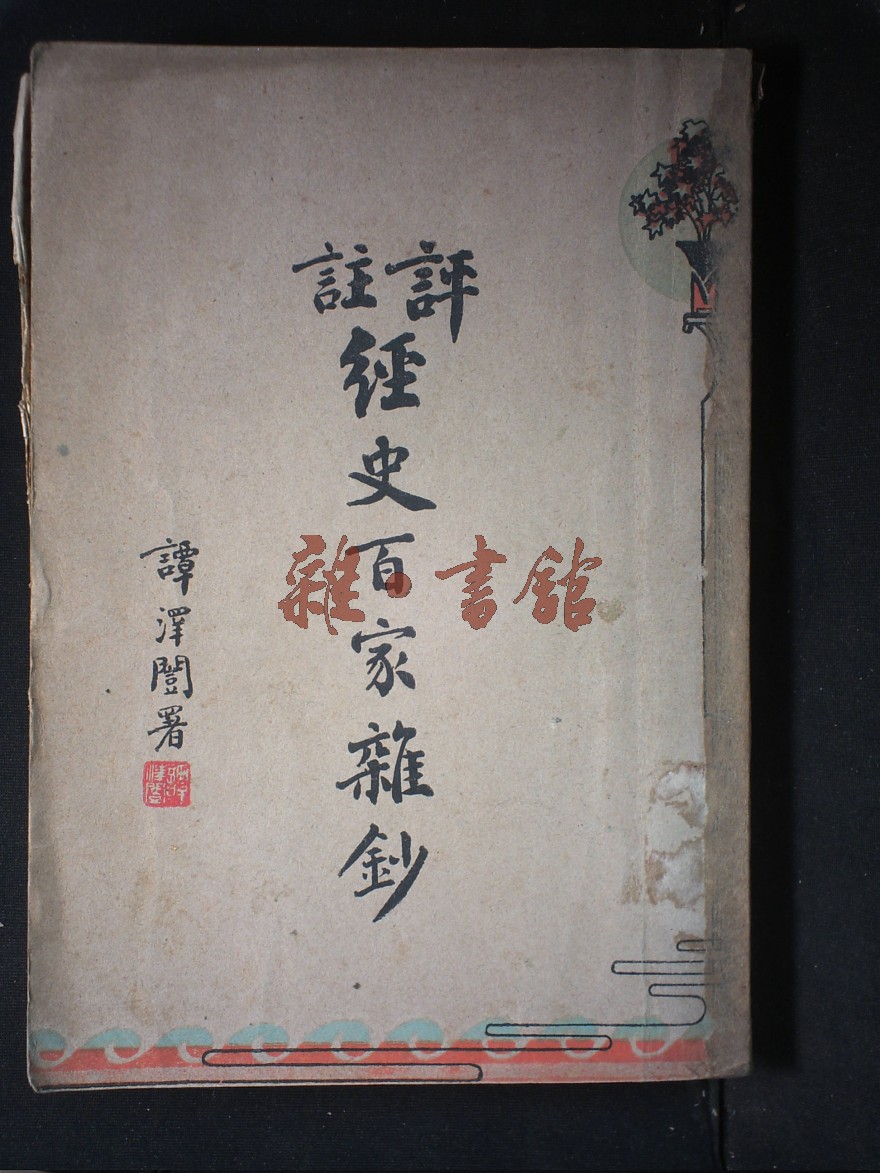 評註
經史百家雜鈔
譚澤闓署
雜·書館